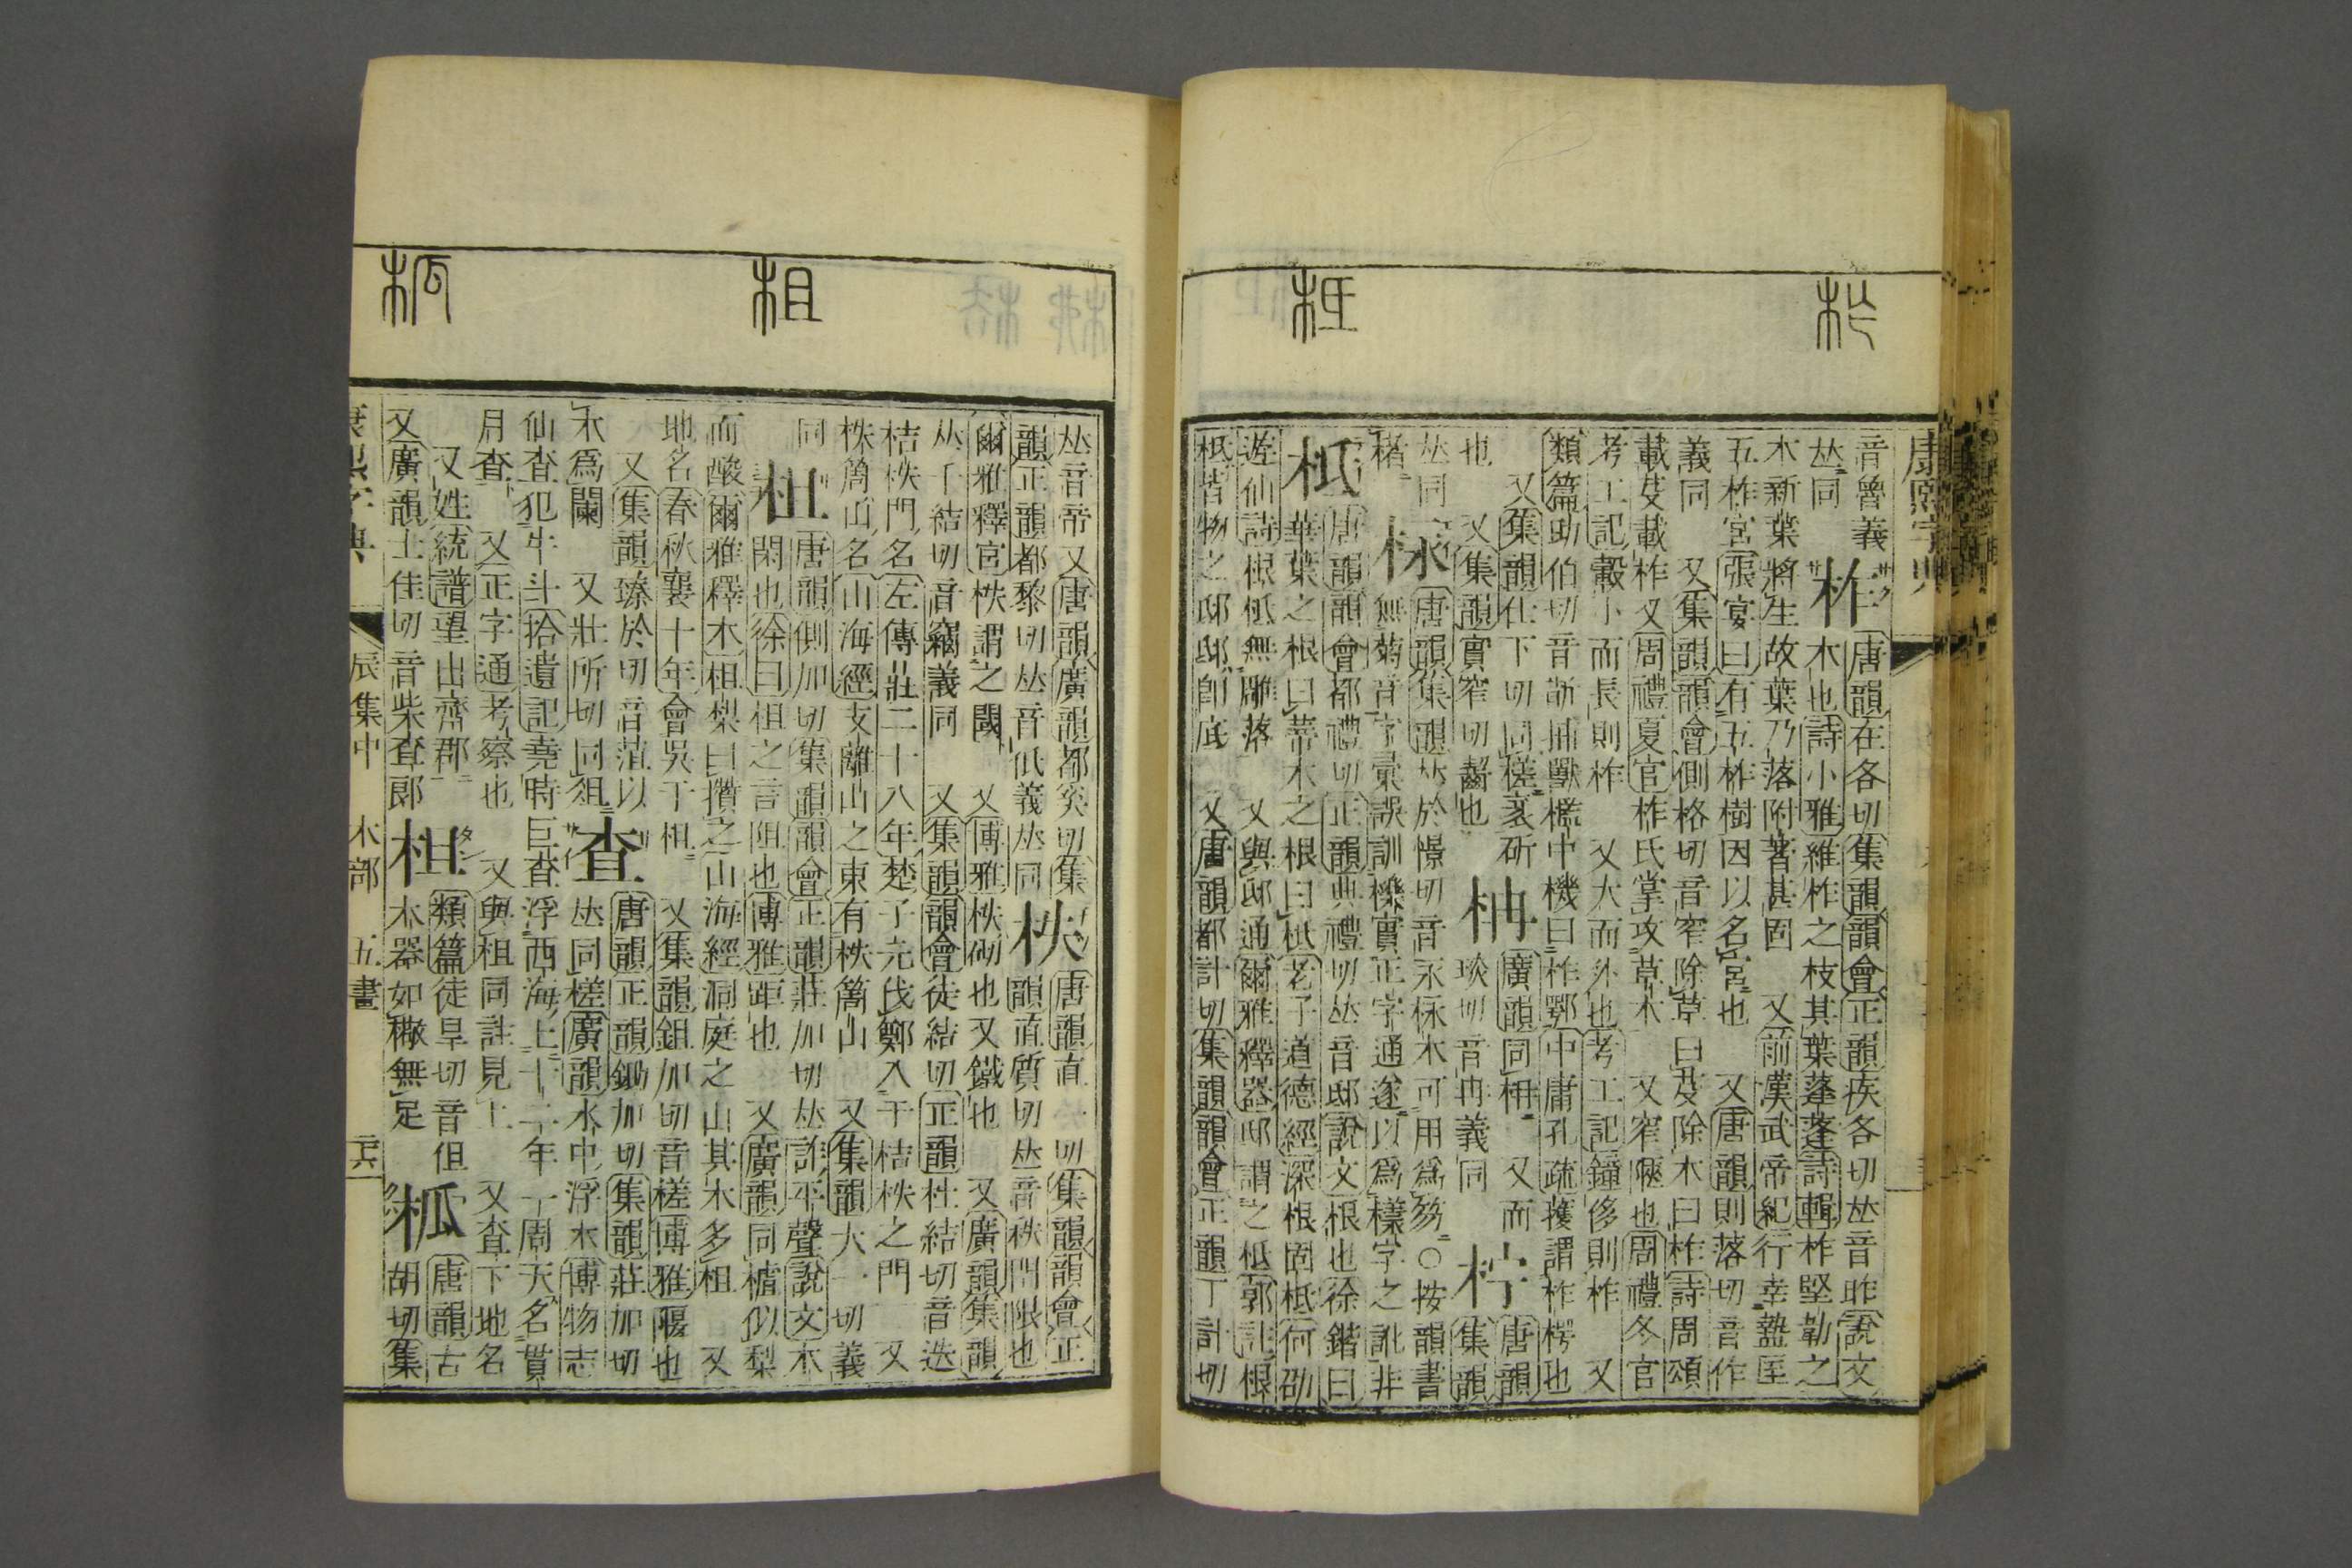 康熙字典
音曾義
𠀤同
柞
唐韻在各切集韻韻會正韻疾各切𠀤音昨說文
木也詩小雅維柞之枝其葉蓬蓬詩輯柞堅勒之
木新葉將生故葉乃落附著甚固 又前漢武帝紀行幸盩厔
五柞宮張晏曰有五柞樹因以名宮也 又唐韻則落切音作
義同 又集韻韻會側格切音窄除草曰芟除木曰柞詩周頌
載芟載柞又周禮夏官柞氏掌攻草木 又窄陿也周禮冬官
考工記轂小而長則柞 又大而外也考工記鐘侈則柞 又
類篇助伯切音齚捕獸檻中機曰柞鄂中庸孔疏擭謂柞楞也
又集韻仕下切同槎衺斫
也 又集韻實窄切齧也
柟
廣韻同枏 又而
琰切音冉義同
柠
唐韻
集韻
𠀤同
楮
柡
唐韻集韻𠀤於憬切音永柡木可用爲笏○按韻書
無菊音字彙誤訓櫟實正字通遂以爲樣字之訛非
柢
唐韻韻會都禮切正韻典禮切𠀤音邸說文根也徐鍇曰
華葉之根曰蔕木之根曰柢老子道德經深根固柢何劭
遊仙詩根柢無凋落 又與邸通爾雅釋器邸謂之柢郭註根
柢皆物之邸邸卽底 又唐韻都計切集韻韻會正韻丁計切
𠀤音帝又唐韻廣韻都奚切集
韻正韻都黎切𠀤音低義𠀤同
柣
唐韻直一切集韻韻會正
韻直質切𠀤音秩門限也
爾雅釋宮柣謂之閾 又博雅柣砌也又鐵也 又廣韻集韻
𠀤千結切音竊義同 又集韻韻會徒結切正韻杜結切音迭
桔柣門名左傳莊二十八年楚子元伐鄭入于桔柣之門 又
柣簡山名山海經支離山之東有柣簡山 又集韻大一切義
同
柤
唐韻側加切集韻韻會正韻莊加切𠀤詐平聲說文木
閑也徐曰柤之言阻也博雅距也 又廣韻同樝似梨
而酸爾雅釋木柤梨曰攢之山海經洞庭之山其木多柤 又
地名春秋襄十年會吳于柤 又集韻鉏加切音槎博雅陿也
又集韻臻於切音菹以
木爲闌 又壯所切同俎
查
唐韻正韻鋤加切集韻莊加切
𠀤同槎廣韻水中浮木博物志
仙查犯牛斗拾遺記堯時巨查浮西海上十二年一周天名貫
月查 又正字通考察也 又與柤同註見上 又查下地名
又姓統譜望出齊郡
又廣韻士佳切音柴查郞
柦
類篇徒旱切音但
木器如橄無足
柧
唐韻古
胡切集
康熙字典 辰集中 木部 五畫 二六